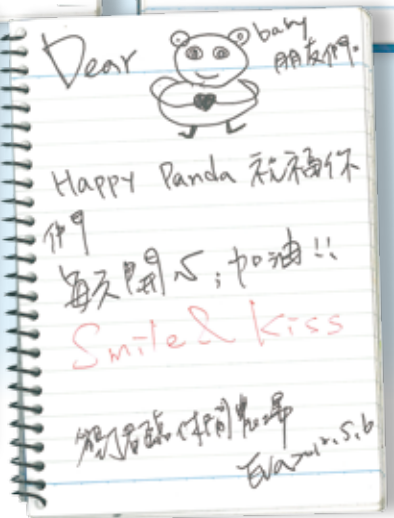 Dear baby
朋友們.
Happy Panda 祝福你
們
每天開心; 加油!!
Smile & Kiss
君臨休閒農場
Eva 2012.5.6